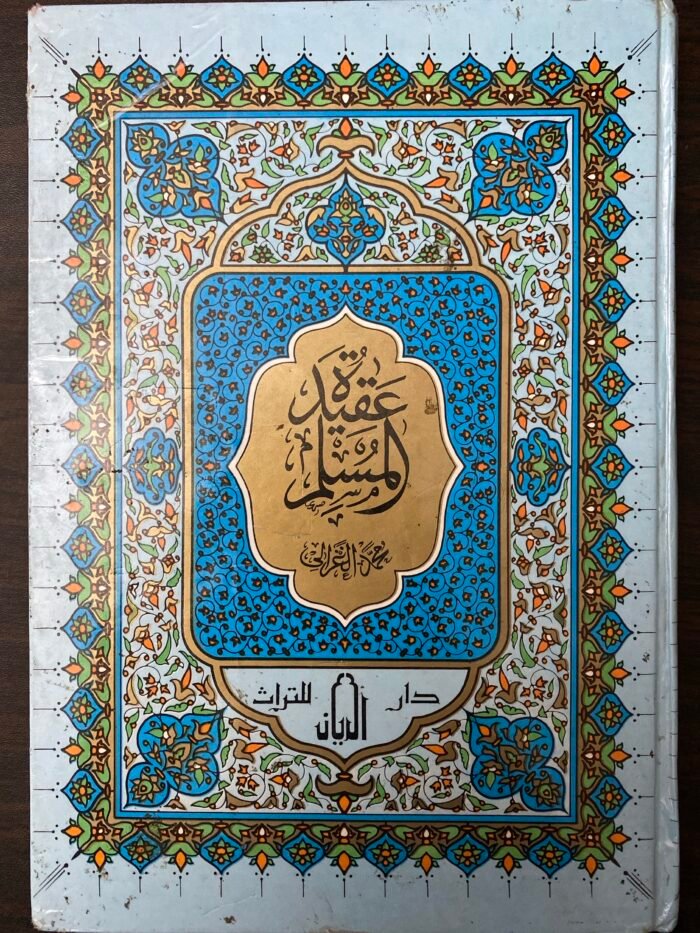 عَقِيدَةُ
المُسْلِم
محمد الغزالى
دار الريان للتراث